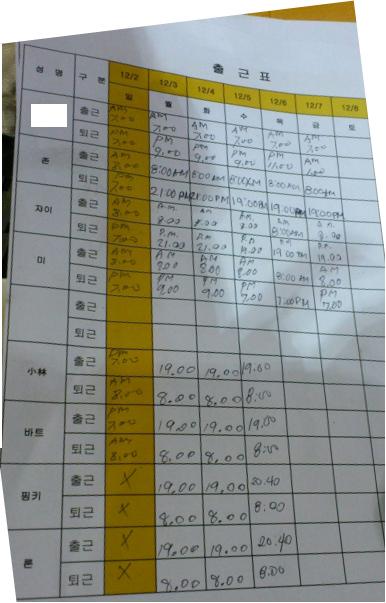 출 근 표
성 명 구 분 12/2 12/3 12/4 12/5 12/6 12/7 12/8
일 월 화 수 목 금 토
출근 AM 7.00 AM 7.00 AM 7.00 AM 7.00 AM 7.00 AM 7.00
퇴근 PM 7.00 PM 9.00 PM 9.00 PM 9.00 PM
존 출근 AM 8:00AM 8:00AM 8:00AM 8:00AM 8:00AM
퇴근 PM 7.00 21:00PM 21:00PM 19:00PM 19:00PM 19:00PM
쟈이 출근 AM 8.00 A.M. 8.00 A.M. 8.00 A.M. 8.00 8:00AM 8.00
퇴근 PM 7.00 P.M. 21.00 21.00 19.00 19.00
미 출근 AM 8.00 AM 8.00 AM 8.00 AM 8.00 8:00AM AM 8.00
퇴근 PM 7.00 PM 9.00 PM 9.00 PM 7.00 7.00PM PM 7.00
출근
퇴근
小林 출근 PM 7.00 19.00 19.00 19.00
퇴근 AM 8.00 8.00 8.00 8:00
바트 출근 PM 7.00 19.00 19.00 19.00
퇴근 AM 8.00 8.00 8.00 8:00
핑키 출근 X 19.00 19.00 20.40
퇴근 X 8.00 8.00 8:00
론 출근 X 19.00 19.00 20.40
퇴근 X 8.00 8.00 8:00